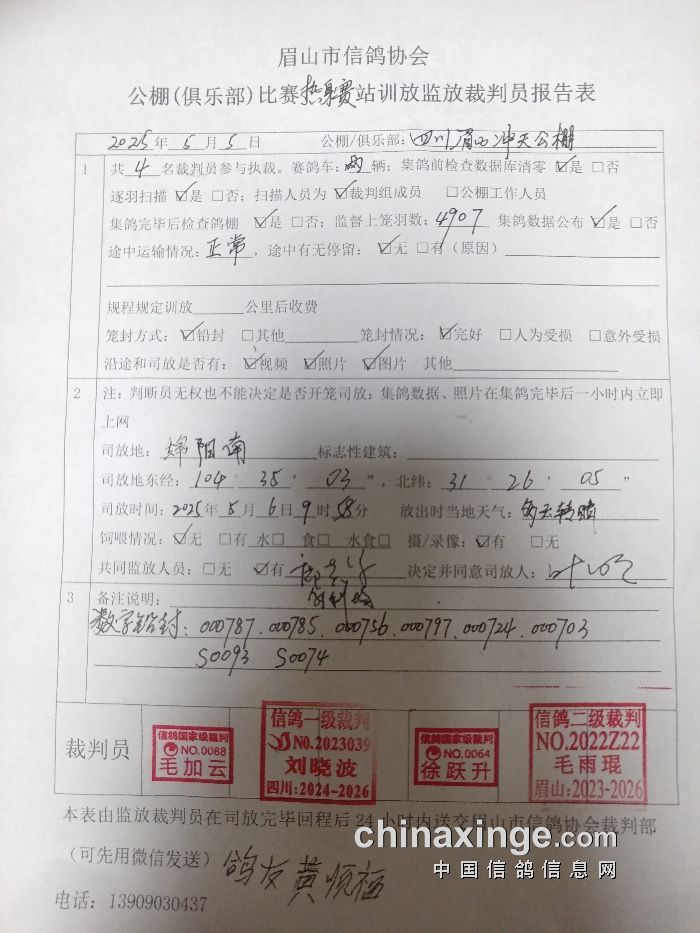 眉山市信鸽协会
公棚(俱乐部)比赛热身赛站训放监放裁判员报告表
2025年5月5日 公棚/俱乐部:四川眉山冲天公棚
1 共4名裁判员参与执裁。赛鸽车:两辆;集鸽前检查数据库清零 ☑是 □否
逐羽扫描 ☑是 □否;扫描人员为 ☑裁判组成员 □公棚工作人员
集鸽完毕后检查鸽棚 ☑是 □否;监督上笼羽数:4907 集鸽数据公布 ☑是 □否
途中运输情况:正常,途中有无停留:☑无 □有(原因)
规程规定训放 公里后收费
笼封方式:☑铅封 □其他 笼封情况:☑完好 □人为受损 □意外受损
沿途和司放是否有:☑视频 ☑照片 ☑图片 其他
2 注:判断员无权也不能决定是否开笼司放;集鸽数据、照片在集鸽完毕后一小时内立即
上网
司放地:绵阳南 标志性建筑:
司放地东经:104°35′03″,北纬:31°26′05″
司放时间:2025年5月6日9时58分 放出时当地天气:多云转晴
饲喂情况:☑无 □有 水□ 食□ 水食□ 摄/录像:☑有 □无
共同监放人员:□无 ☑有 决定并同意司放人:
3 备注说明:
数字铅封:000787.000785.000756.000797.000724.000703
S0093 S0074
裁判员
信鸽国家级裁判
NO.0088
毛加云
信鸽一级裁判
NO.2023039
刘晓波
四川:2024-2026
信鸽国家级裁判
NO.0064
徐跃升
信鸽二级裁判
NO.2022Z22
毛雨琨
眉山:2023-2026
本表由监放裁判员在司放完毕回程后24小时内送交眉山市信鸽协会裁判部
(可先用微信发送) 鸽友黄顺福
电话:13909030437
chinaxinge.com
中国信鸽信息网